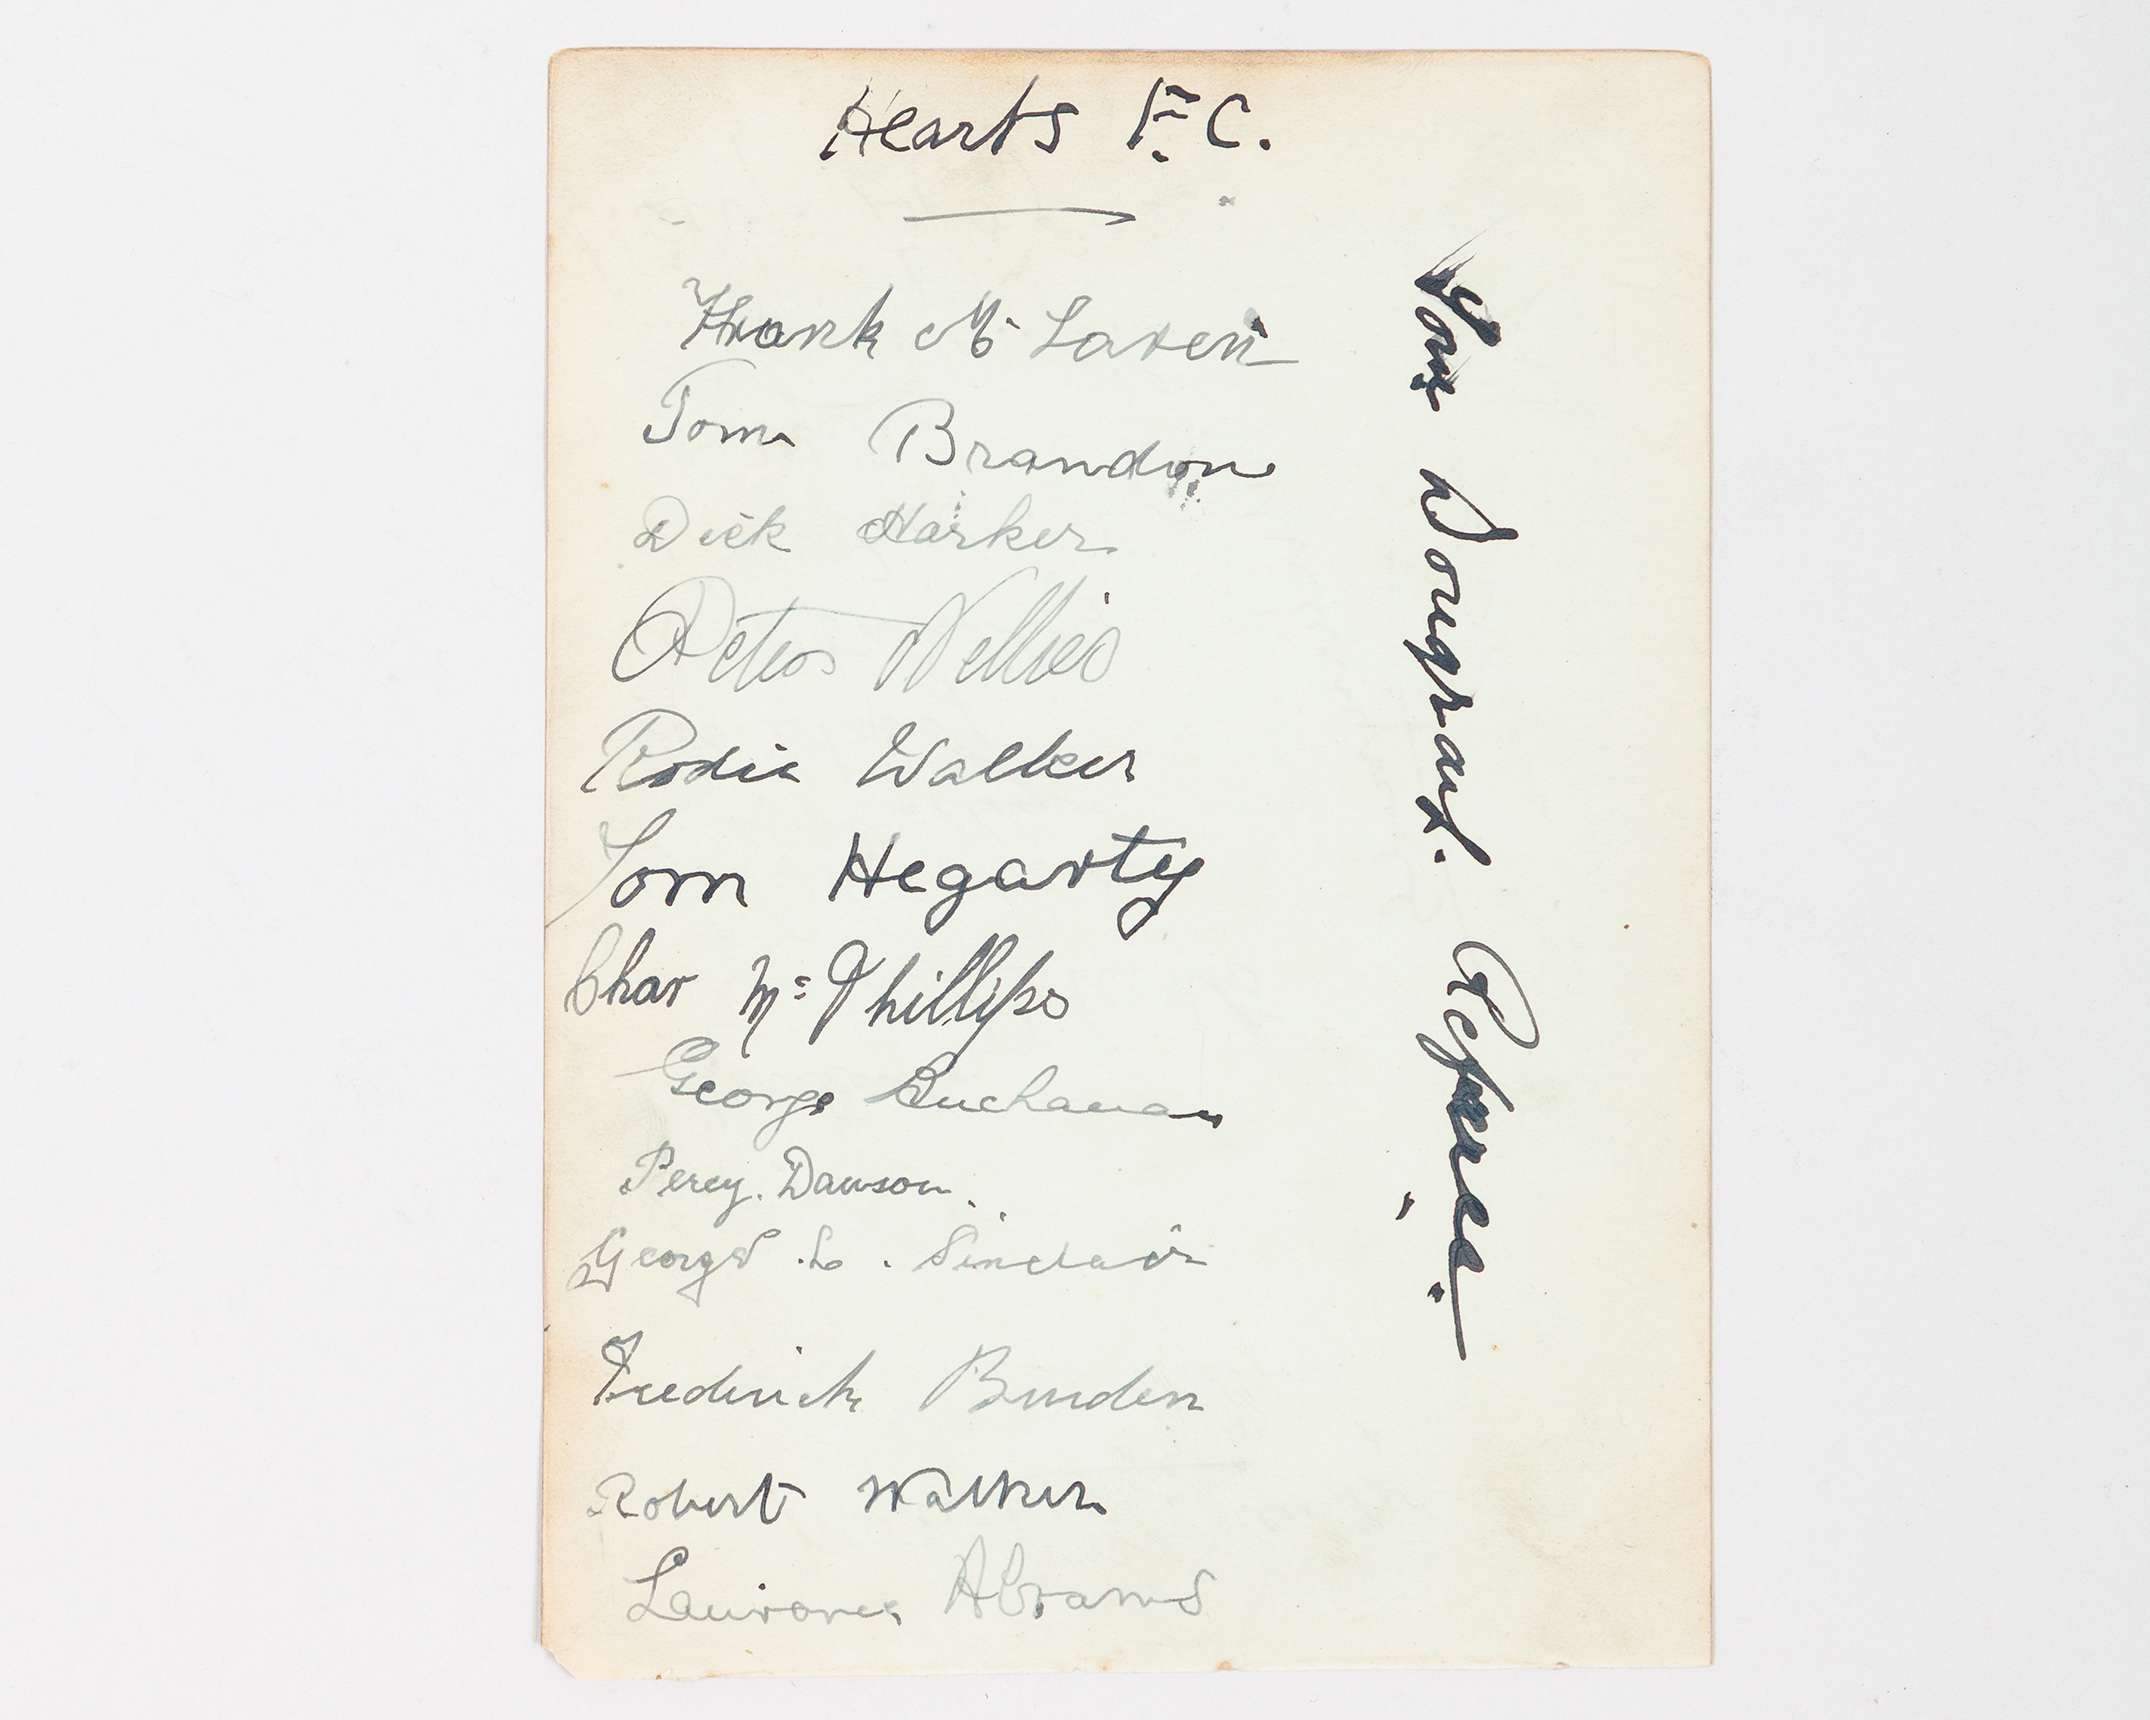 Hearts F.C.
Frank Mc Laren
Tom Brandon
Dick Harker
Peter Nellies
Rodie Walker
Tom Hegarty
Chas Mc Phillips
George Buchanan
Percy. Dawson.
George .L. Sinclair
Frederick Burden
Robert Walker
Laurance Abrams
Tom Dougray. Referee.